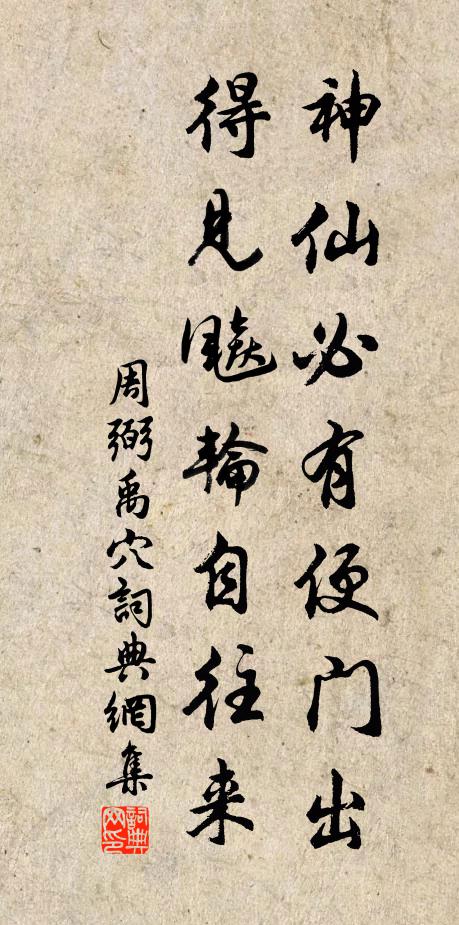 神仙必有便門出
得見飈輪自往来
周弼禹穴詞典網集
詞典网印